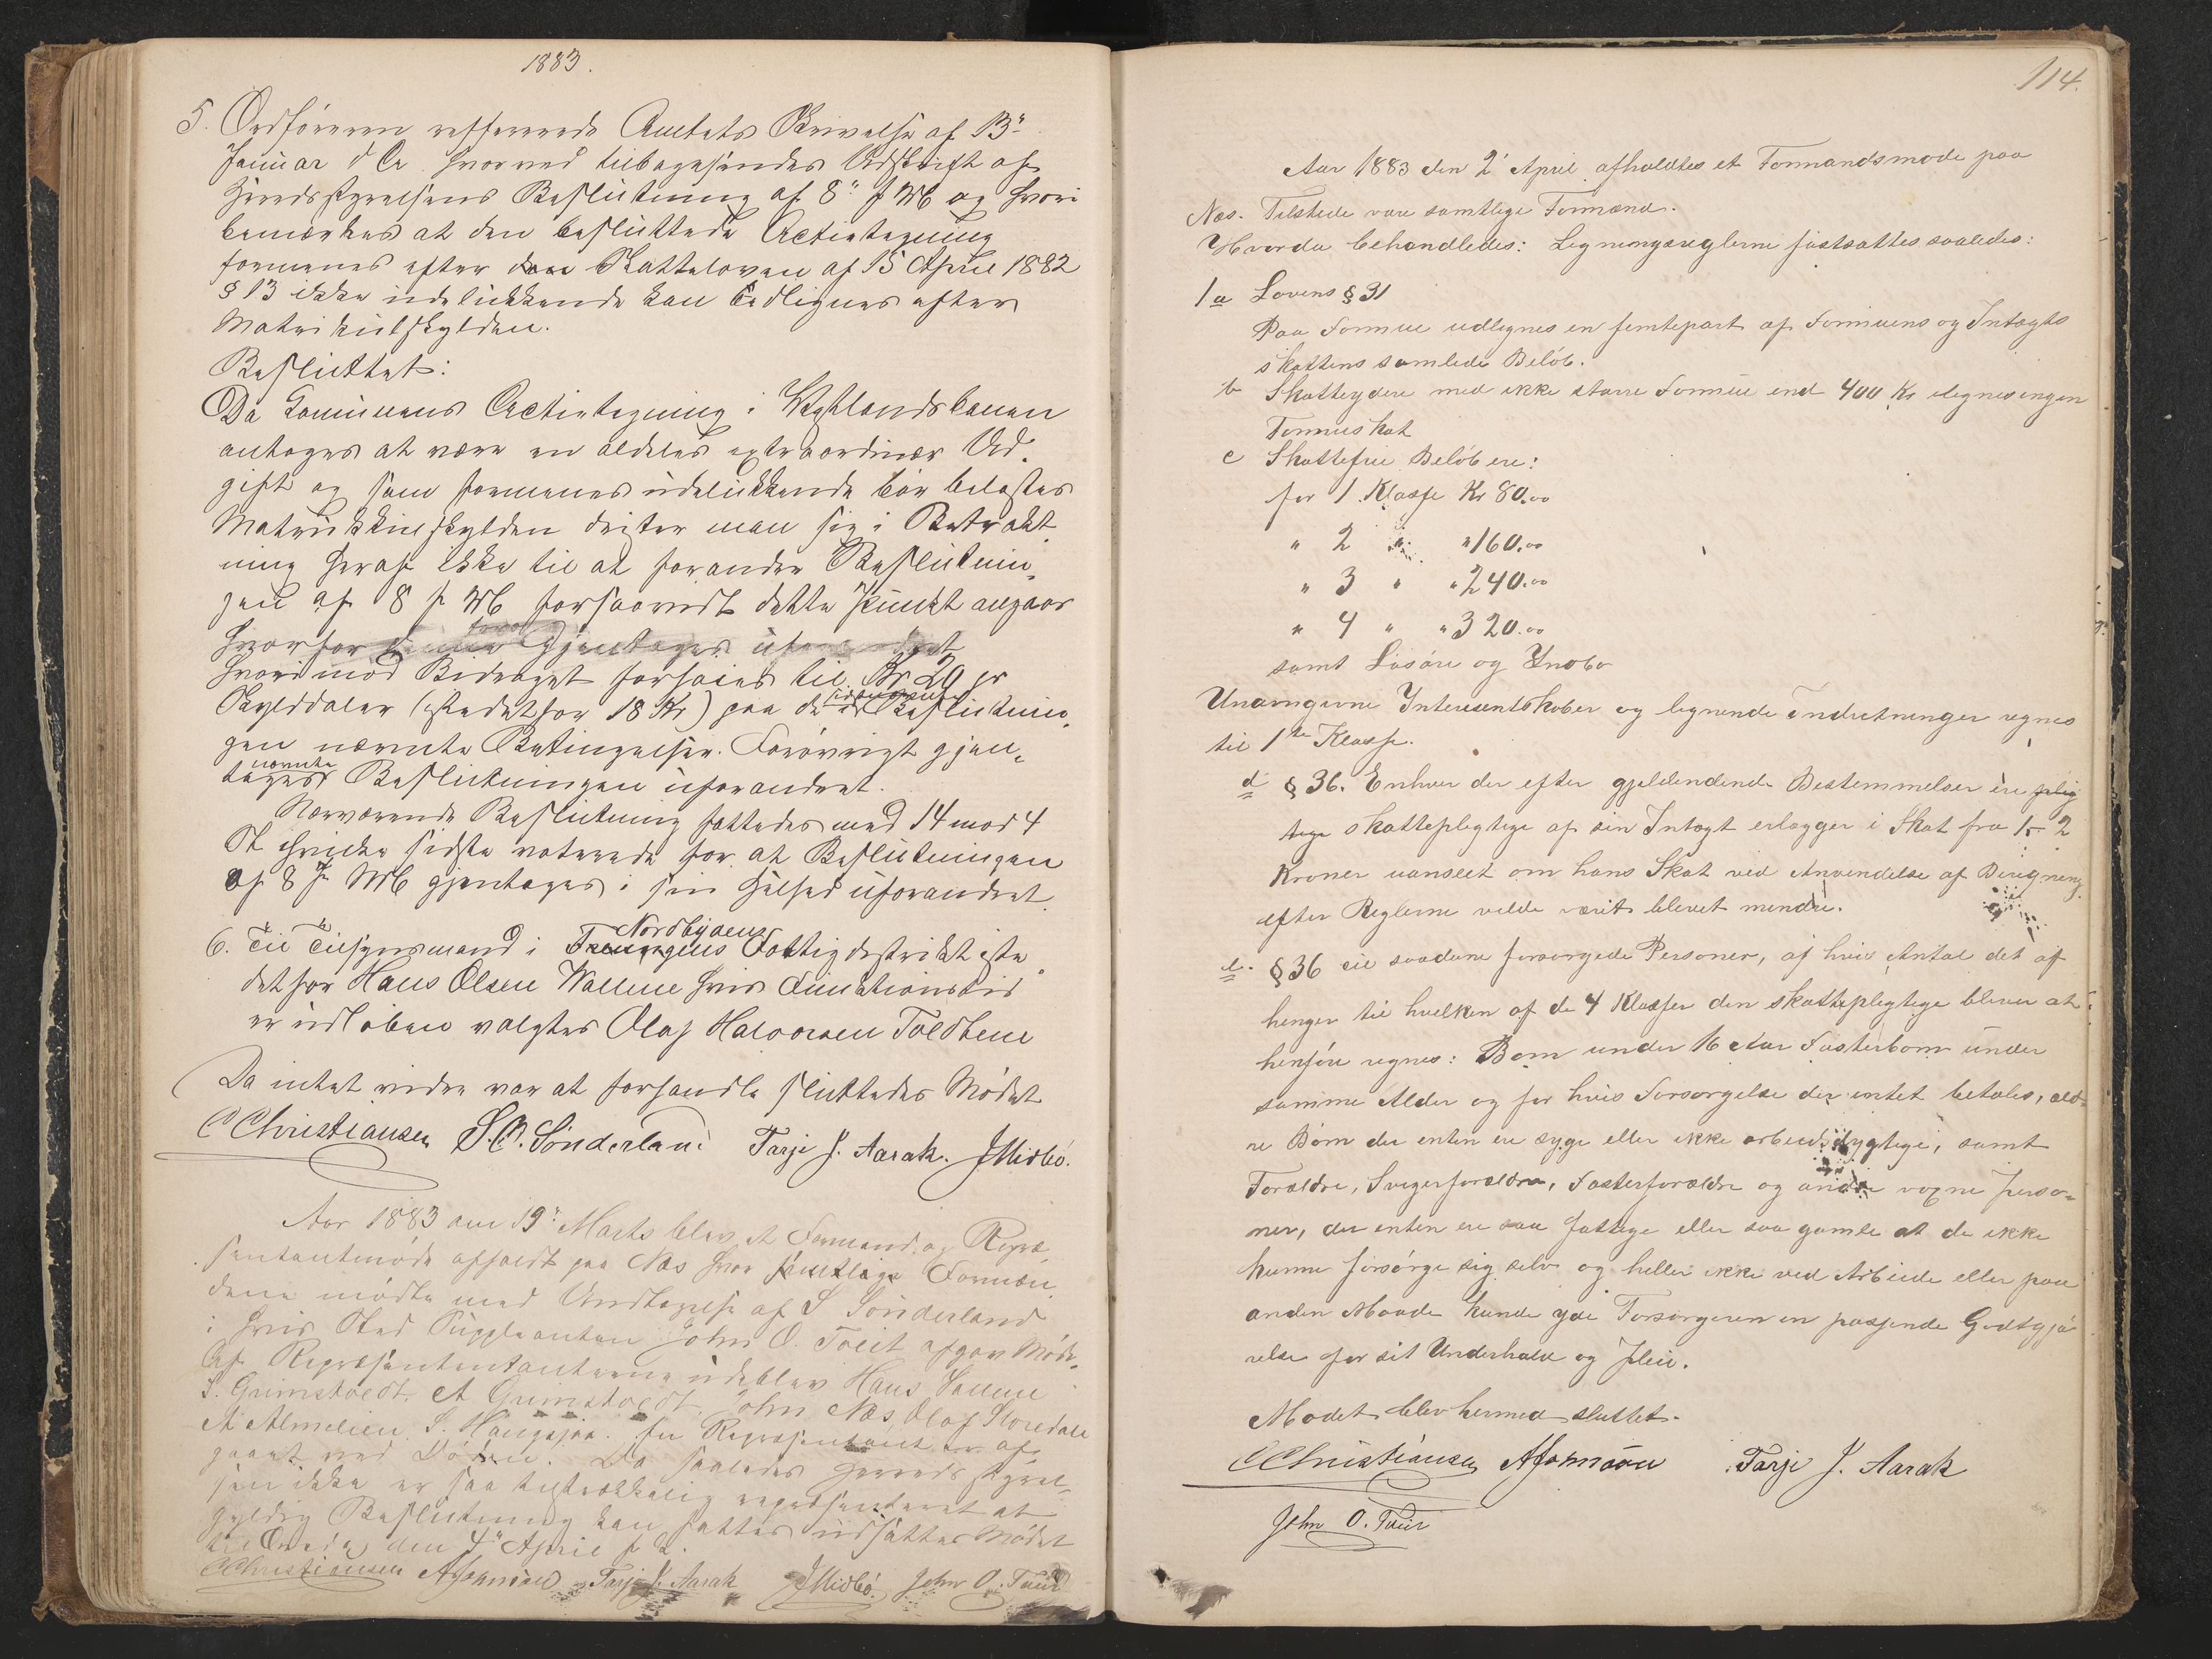 1883.
5. Ordføreren refererede Amtets Skrivelse af 13de
Januar d A hvorved tilbagesendes Udskrift af
Herredsstyrelsens Beslutning af 8de f M og hvori
bemærkes at den besluttede Actietegning
formenes efter den Skatteloven af 15 April 1882
§ 13 ikke udelukkende kan udlignes efter
Matrikulskylden.
Besluttet:
Da Komunens Actietegning i Vestlandsbanen
antages at være en aldeles extraordinær Ud-
gift og som formenes udelukkende bør belastes
Matrikkulskylden drister man sig i Betrakt
ning heraf ikke til at forandre Beslutnin-
gen af 8 f M forsaavidt dette Punkt angaar
hvorfor denne Gjentages uforandret
hvorimod Bidraget forhøies til Kr 20 pr
Skylddaler (istedetfor 18 Kr) paa de i Beslutnin-
gen nævnte Betingelser. Forøvrigt gjen-
tages nævnte Beslutningen uforandret.
Nærværende Beslutning fattedes med 14 mod 4
St hvilke sidste voterede for at Beslutningen
af 8 f M gjentages i sin Helhed uforandret.
6. Til Tilsynsmand i Nordbygdens Fattigdistrikt iste
detfor Hans Olsen Wallene hvis Funktionstid
er udløben valgtes Olaf Halvorsen Toldbene
Da intet videre var at forhandle sluttedes Mødet
C Christiansen S. O. Sønderland Tarje J. Aarak. J Midbö.
Aar 1883 den 19de Marts blev et Formands og Repræ
sentantmøde afholdt paa Næs hvor samtlige Formæn
dene mødte med Undtagelse af S Sönderland
i hvis Sted Suppleanten John O. Tveit afgav Møde.
Af Repræsentantanterne udeblev Hans Vallene
S. Grimstvedt, A Grimstvedt, John Næs, Olaf Storedale
A Almelien, S. Haugsjaa. En Repræsentant er af-
gaaet ved Døden. Da saaledes Herredsstyrel-
sen ikke er saa tilstrækkelig repræsenteret at
gyldig Beslutning kan fattes udsættes Mødet
til Onsdag den 4de April f A.
C Christiansen Tarje J. Aarak J Midbö. John O. Tveit
114.
Aar 1883 den 2' April afholdtes et Formandsmøde paa
Næs. Tilstede vare samtlige Formænd.
Hvorda behandledes: Ligningsreglerne fastsattes saaledes:
1 a Lovens § 31
Paa Formue udlignes en femtepart af Formuens og Intægts
skattens samlede Beløb.
b Skatteydere med ikke større Formue end 400 Kr ilegnes ingen
Formuskat
c Skattefrie Beløb ere:
for 1. Klasse Kr 80.00
" 2 " " 160.00
" 3 " " 240.00
" 4 " " 320.00
samt Løsøre og Indbo
Unævngivne Interesentskaber og lignende Indretninger regnes
til 1ste Klasse.
d § 36. Enhver der efter gjeldendende Bestemmelser ere pelig
tege skattepligtige af sin Intægt erlægger i Skat fra 1 – 2
Kroner uanseet om hans Skat ved Anvendelse af Beregning
efter Reglerne vilde været blevet mendre.
e. § 36 til saadane forsørgede Personer, af hvis Antal det af
henger til hvelken af de 4 Klasser den skattepligtige bliver at
henføre regnes: Børn under 16 Aar Fosterbørn under
samme Alder og for hvis Forsørgelse der intet betales, æld-
re Børn der enten ere syge eller ikke arbeidsdygtige, samt
Forældre, Svigerforældre, Fosterforældre og andre voxne perso-
ner, der enten ere saa fattige eller saa gamle at de ikke
kunne forsørge sig selv og heller ikke ved Arbeide eller paa
anden Maade kunde yde Forsørgeren en passende Godtgjø
relse for sit Underhold og Pleie.
Mødet blev hermed sluttet.
C Christiansen Tarje J. Aarak
John O. Tveit